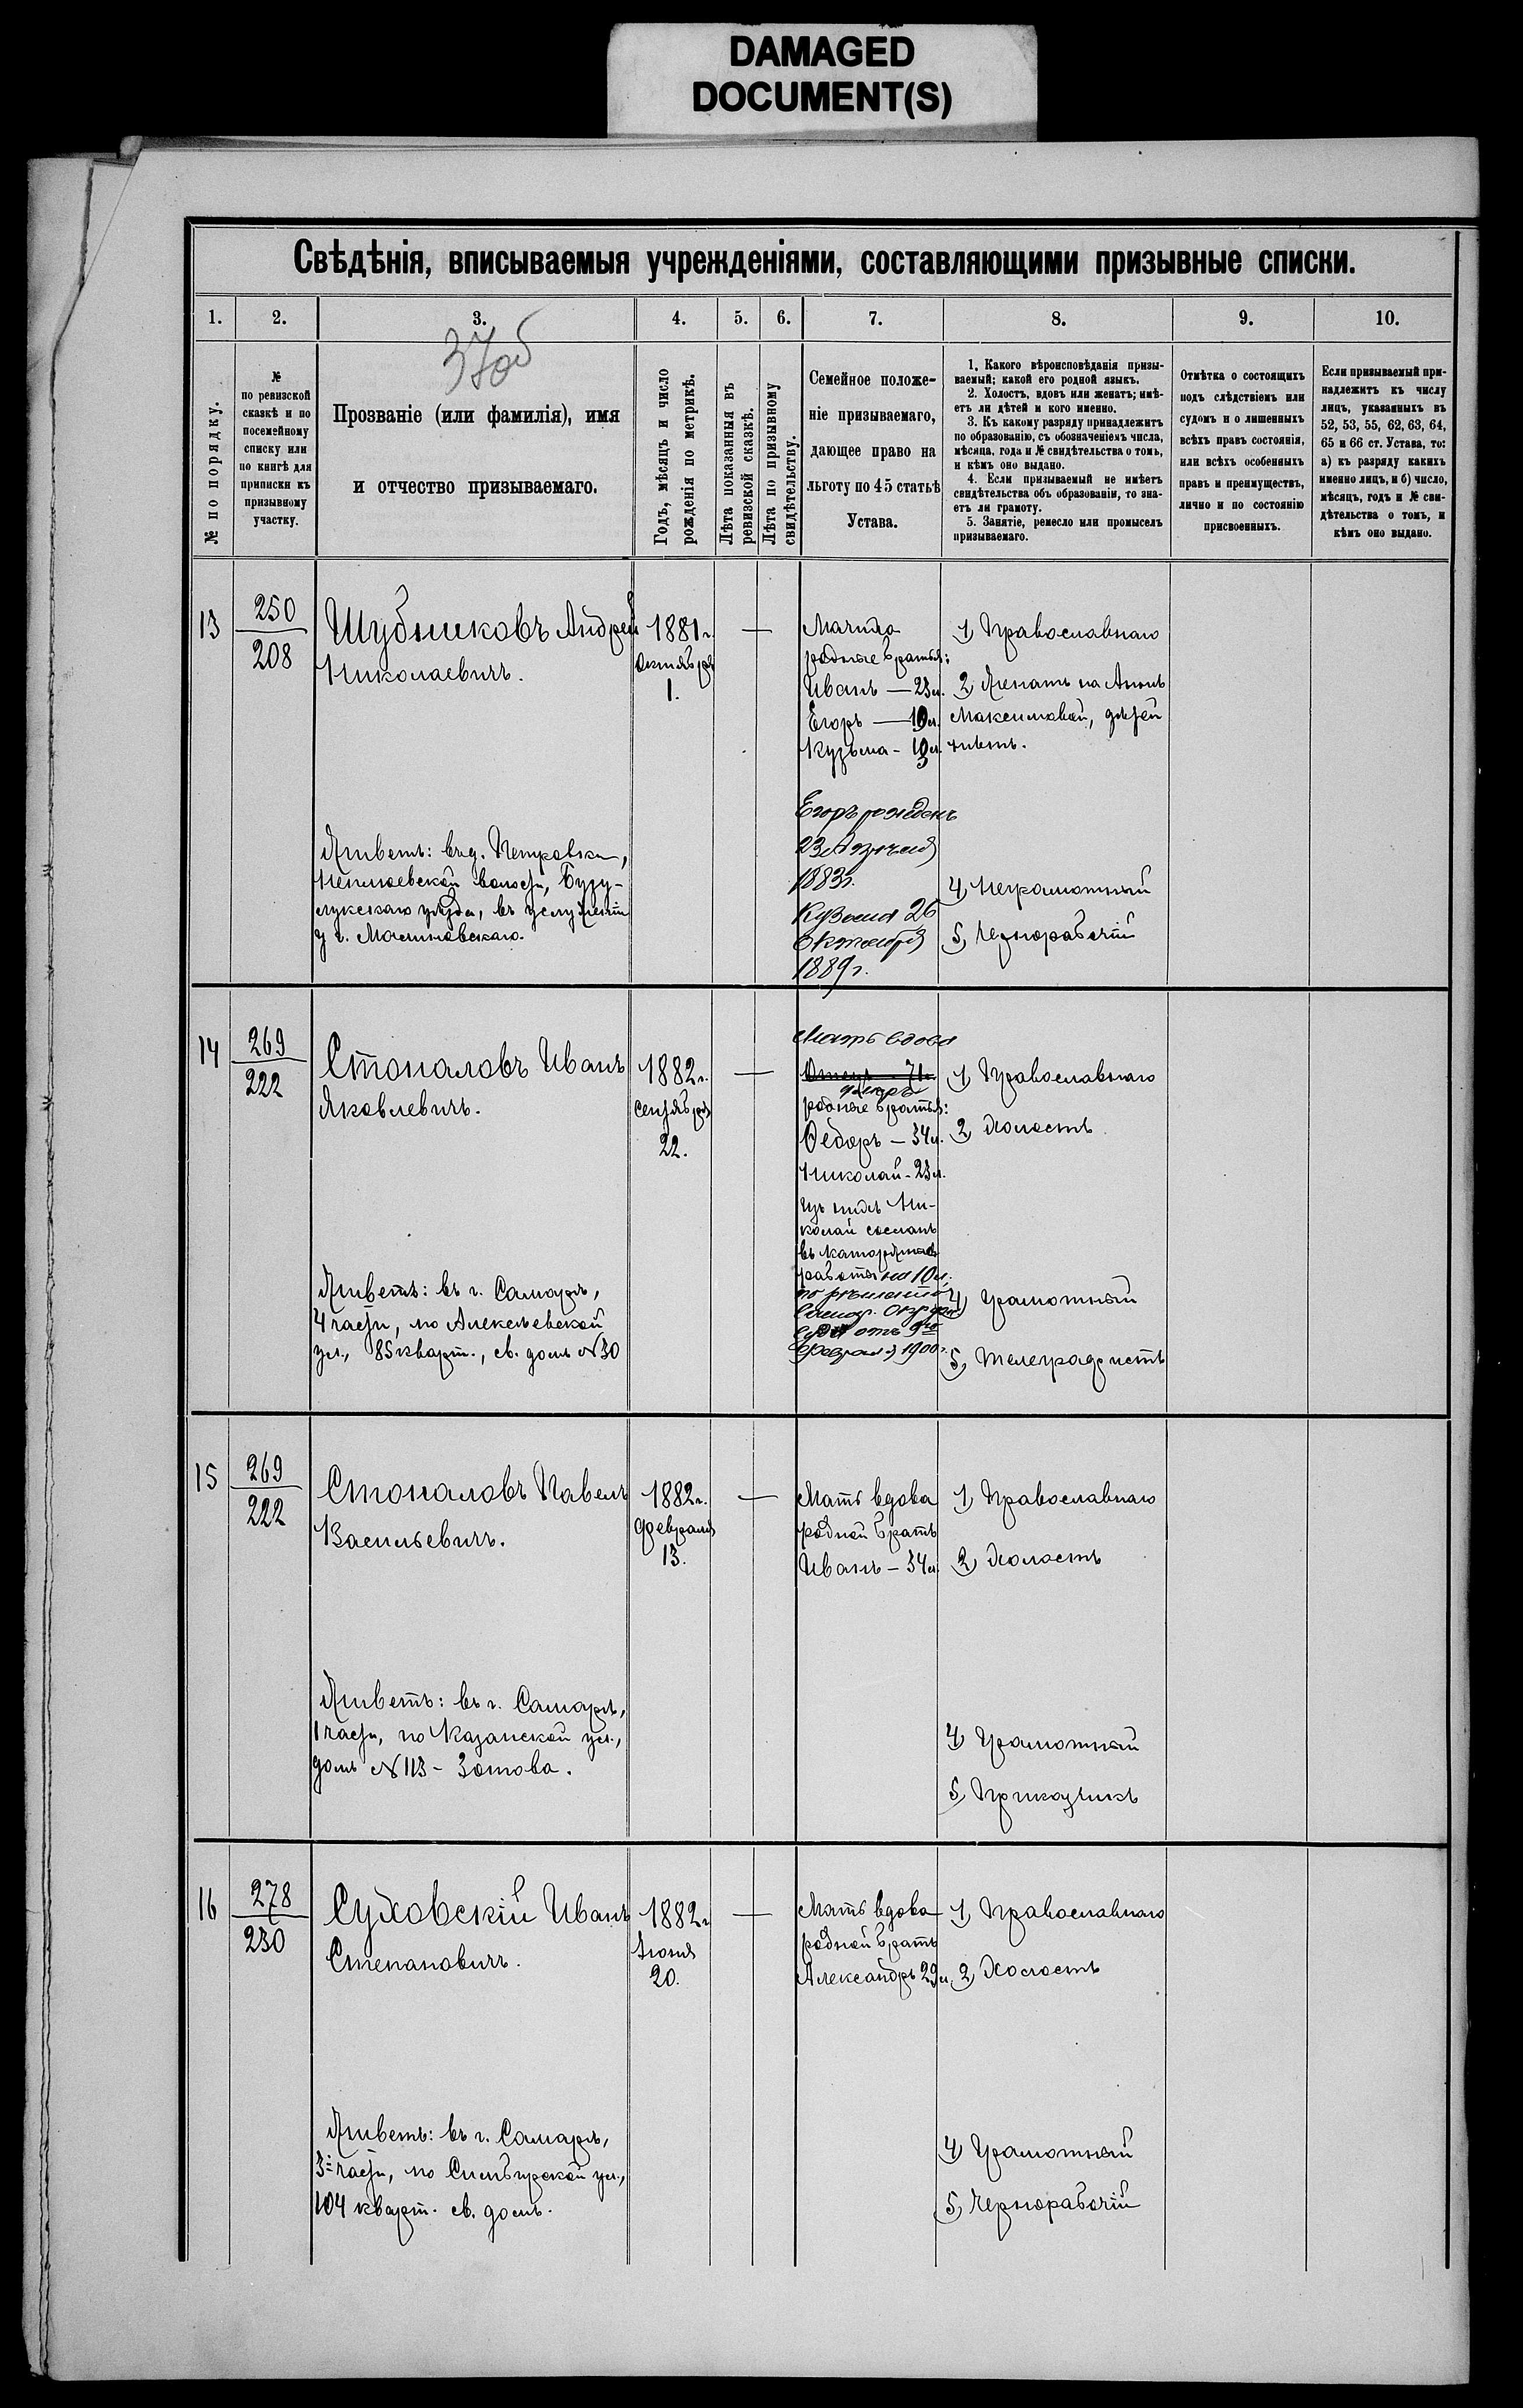 DAMAGED
DOCUMENT(S)
Свѣдѣнія, вписываемыя учрежденіями, составляющими призывные списки.
1. 2. 3. 4. 5. 6. 7. 8. 9. 10.
37об
№ по порядку.
№
по ревизской
сказкѣ и по
посемейному
списку или
по книгѣ для
приписки къ
призывному
участку.
Прозваніе (или фамилія), имя
и отчество призываемаго.
Годъ, мѣсяцъ и число
рожденія по метрикѣ.
Лѣта показанныя въ
ревизской сказкѣ.
Лѣта по призывному
свидѣтельству.
Семейное положе-
ніе призываемаго,
дающее право на
льготу по 45 статьѣ
Устава.
1. Какого вѣроисповѣданія призы-
ваемый; какой его родной языкъ.
2. Холостъ, вдовъ или женатъ; имѣ-
етъ ли дѣтей и кого именно.
3. Къ какому разряду принадлежитъ
по образованію, съ обозначеніемъ числа,
мѣсяца, года и № свидѣтельства о томъ,
и кѣмъ оно выдано.
4. Если призываемый не имѣетъ
свидѣтельства объ образованіи, то зна-
етъ ли грамоту.
5. Занятіе, ремесло или промыселъ
призываемаго.
Отмѣтка о состоящихъ
подъ слѣдствіемъ или
судомъ и о лишенныхъ
всѣхъ правъ состоянія,
или всѣхъ особенныхъ
правъ и преимуществъ,
лично и по состоянію
присвоенныхъ.
Если призываемый при-
надлежитъ къ числу
лицъ, указанныхъ въ
52, 53, 55, 62, 63, 64,
65 и 66 ст. Устава, то:
а) къ разряду какихъ
именно лицъ, и б) число,
мѣсяцъ, годъ и № сви-
дѣтельства о томъ, и
кѣмъ оно выдано.
13
250
208
Шубниковъ Андрей
Николаевичъ.
Живетъ: въ д. Петровка,
волости, Бузу-
лукскаго уѣзда, въ услуженіи
у г.
1881 г.
Октября
1.
—
Мачиха
родные братья:
Иванъ — 23 л.
Егоръ — 19 л.
Кузьма - 13 л.
Егоръ рожденъ
23 Апрѣля
1883 г.
Кузьма 26
Октября
1889 г.
1) Православнаго
2) Женатъ на Аннѣ
Максимовой, дѣтей
нѣтъ.
4) Неграмотный
5) Чернорабочій
14
269
222
Стопаловъ Иванъ
Яковлевичъ.
Живетъ: въ г. Самарѣ,
4 части, по Алексѣевской
ул., 85 кварт., св. домъ №30
1882 г.
сентября
22.
—
Мать вдова
Отецъ - 71 г.
умеръ
родные братья:
Ѳедоръ — 34 л.
Николай - 23 л.
Изъ нихъ Ни-
колай сосланъ
въ каторжныя
работы на 10 л.
по рѣшенію
Самар. Окруж.
Суда отъ 9го
Февраля 1900 г.
1) Православнаго
2) Холостъ
4) Грамотный
5) Телеграфистъ
15
269
222
Стопаловъ Павелъ
Васильевичъ.
Живетъ: въ г. Самарѣ,
1 части, по Казанской ул.,
домъ №113 - Зотова.
1882 г.
февраля
13.
—
Мать вдова
родной братъ
Иванъ — 34 л.
1) Православнаго
2) Холостъ
4) Грамотный
5) Приказчикъ
16
278
230
Суховскій Иванъ
Степановичъ.
Живетъ: въ г. Самарѣ,
3й части, по Симбирской ул.,
104 кварт. св. домъ.
1882 г
Іюня
20.
—
Мать вдова
родной братъ
Александръ 29 л.
1) Православнаго
2) Холостъ
4) Грамотный
5) Чернорабочій